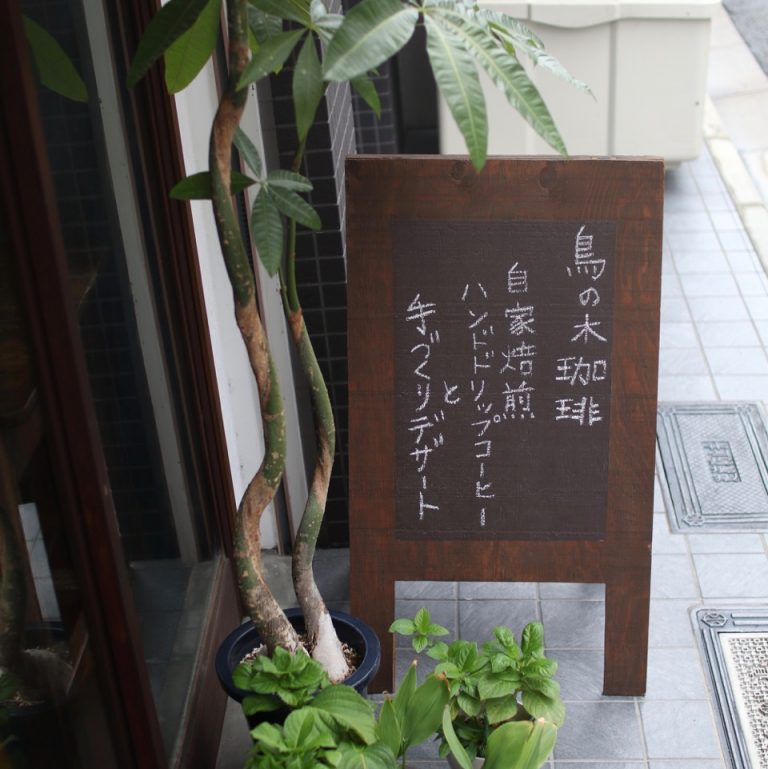 鳥の木珈琲
自家焙煎
ハンドドリップコーヒー
と
手づくりデザート